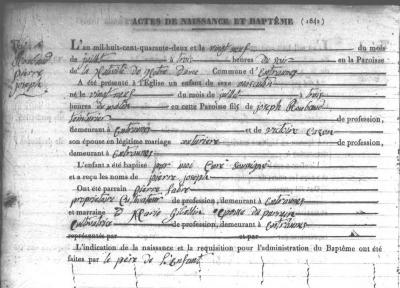 ACTES DE NAISSANCE ET BAPTÊME (1842)
Roubaud
pierre
joseph
L'an mil-huit-cent-quarante-deux et le vingt neuf du mois
de juillet à trois heures du soir en la Paroisse
de la Nativité de Notre Dame Commune d'Entraunes
A été présenté à l'Eglise un enfant de sexe masculin
né le vingt neuf du mois de juillet à trois
heures du matin en cette Paroisse fils de joseph Roubaud
de profession,
demeurant à Entraunes et de victoire
son épouse en légitime mariage couturière de profession,
demeurant à Entraunes
L'enfant a été baptisé par moi Curé
et a reçu les noms de pierre joseph
Ont été parrain pierre faure
propriétaire Cultivateur de profession, demeurant à Entraunes
et marraine D. Marie épouse du parrain
Cultivatrice de profession, demeurant à Entraunes
représentés par et par
L'indication de la naissance et la requisition pour l'administration du Baptême ont été
faites par le père de l'enfant